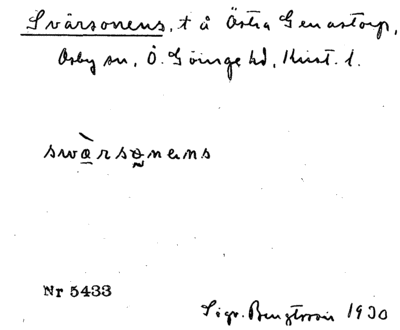 Svärsonens, t å Östra Genastorp,
Osby sn, Ö. Göinge hd, Krist. l.
swàrsonens
Nr 5433
Sigv. Bengtsson 1930